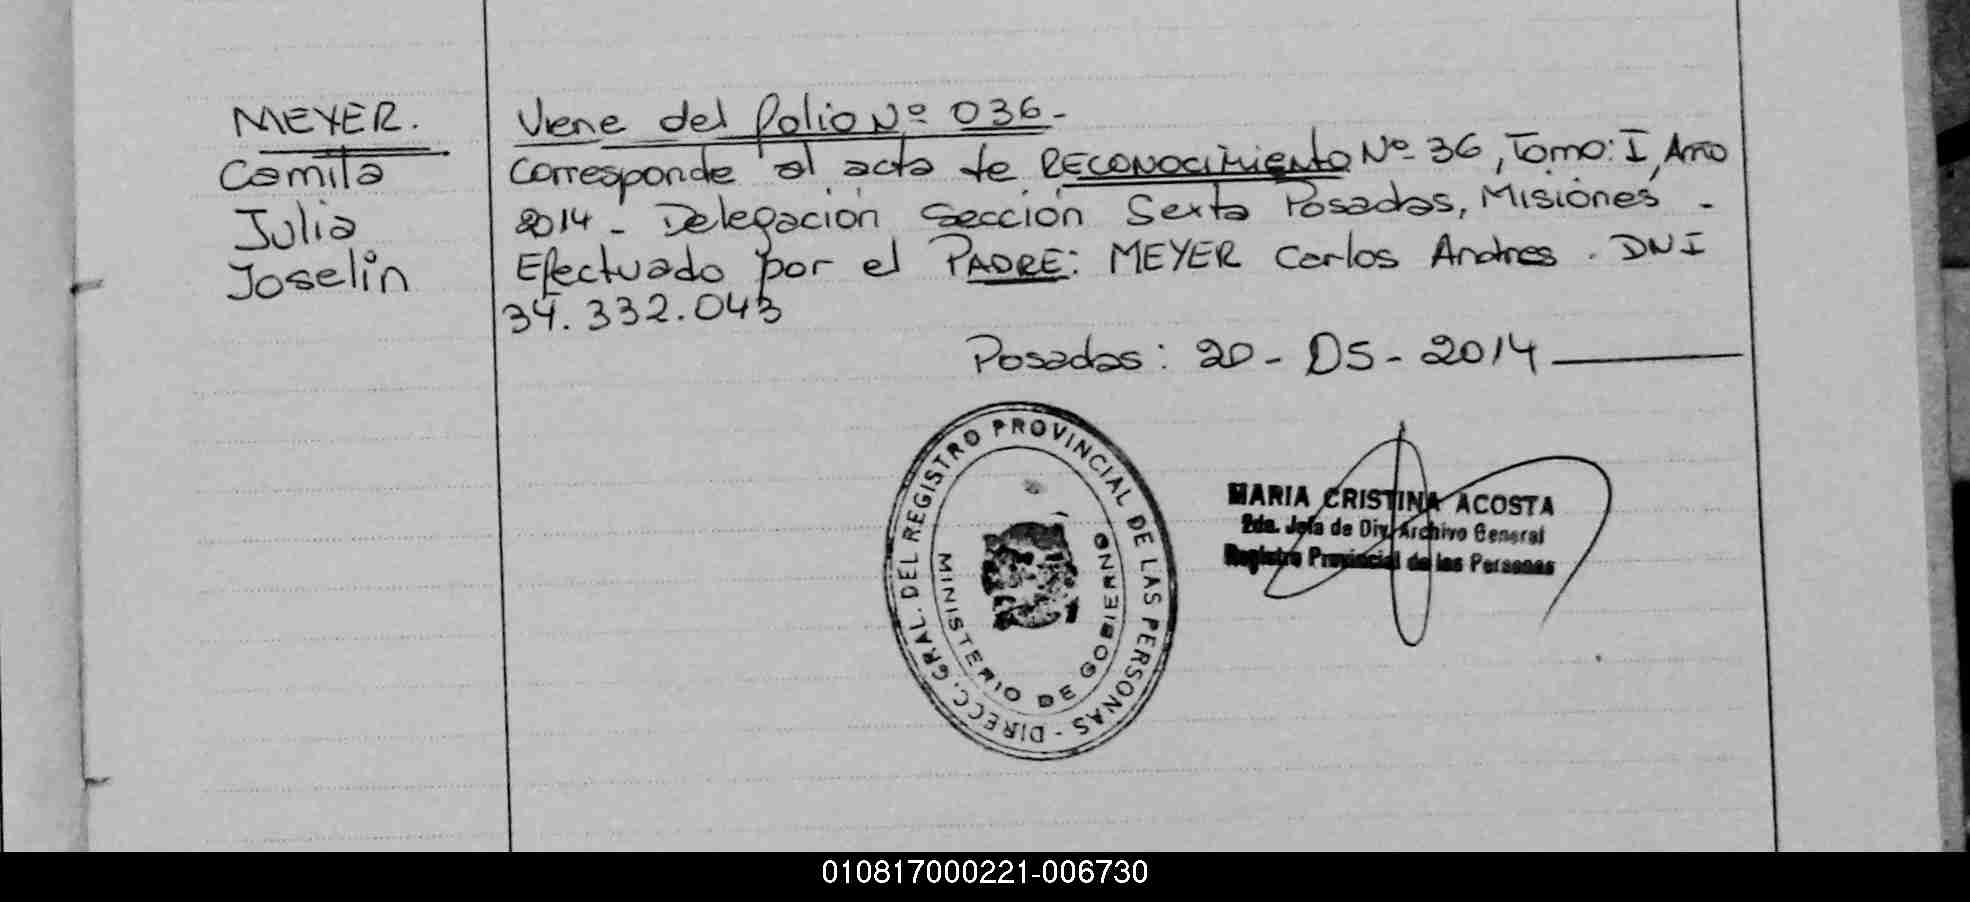 MEYER.
Camila
Julia
Joselin
Viene del folio Nº 036-
Corresponde al acta de RECONOCIMIENTO Nº 36, Tomo: I, Año
2014 - Delegación Sección Sexta Posadas, Misiones -
Efectuado por el PADRE: MEYER Carlos Andres. DNI
34.332.043
Posadas: 20-05-2014
DIRECC. GRAL. DEL REGISTRO PROVINCIAL DE LAS PERSONAS -
MINISTERIO DE GOBIERNO
MARIA CRISTINA ACOSTA
2da. Jefa de Div. Archivo General
Registro Provincial de las Personas
010817000221-006730